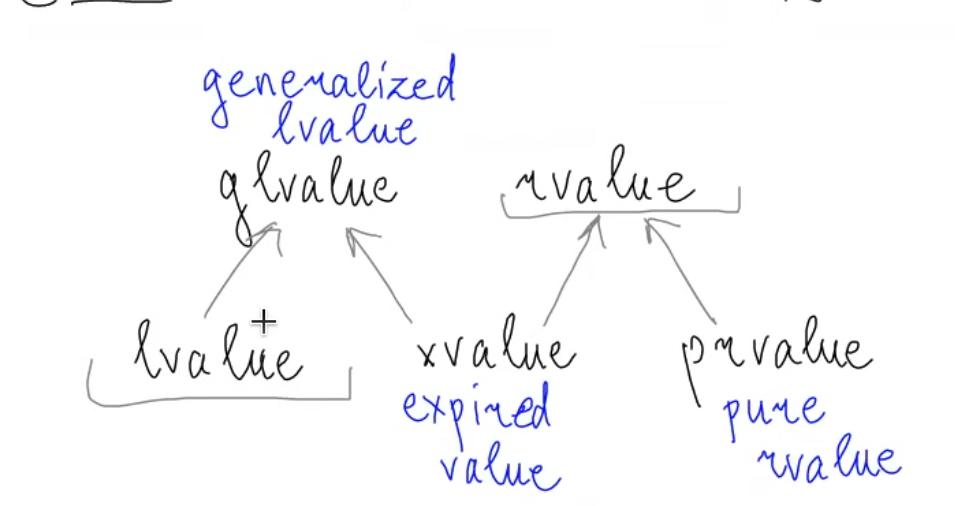 generalized
lvalue
glvalue
rvalue
lvalue
xvalue
prvalue
expired
value
pure
rvalue